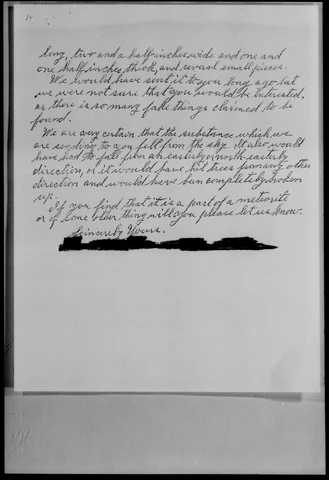 long, two and a half inches wide and one and
one half inches thick, and several small pieces.
We would have sent it to you long ago, but
we were not sure that you would be interested,
as there is so many fake things claimed to be
found.
We are very certain that the substance which we
are sending to you fell from the sky. It also would
have had to fall from an easterly or north-easterly
direction, or it would have hit trees from any other
direction and would have been completely broken
up.
If you find that it is a part of a meteorite
or of some other thing will you please let us know.
Sincerely Yours.